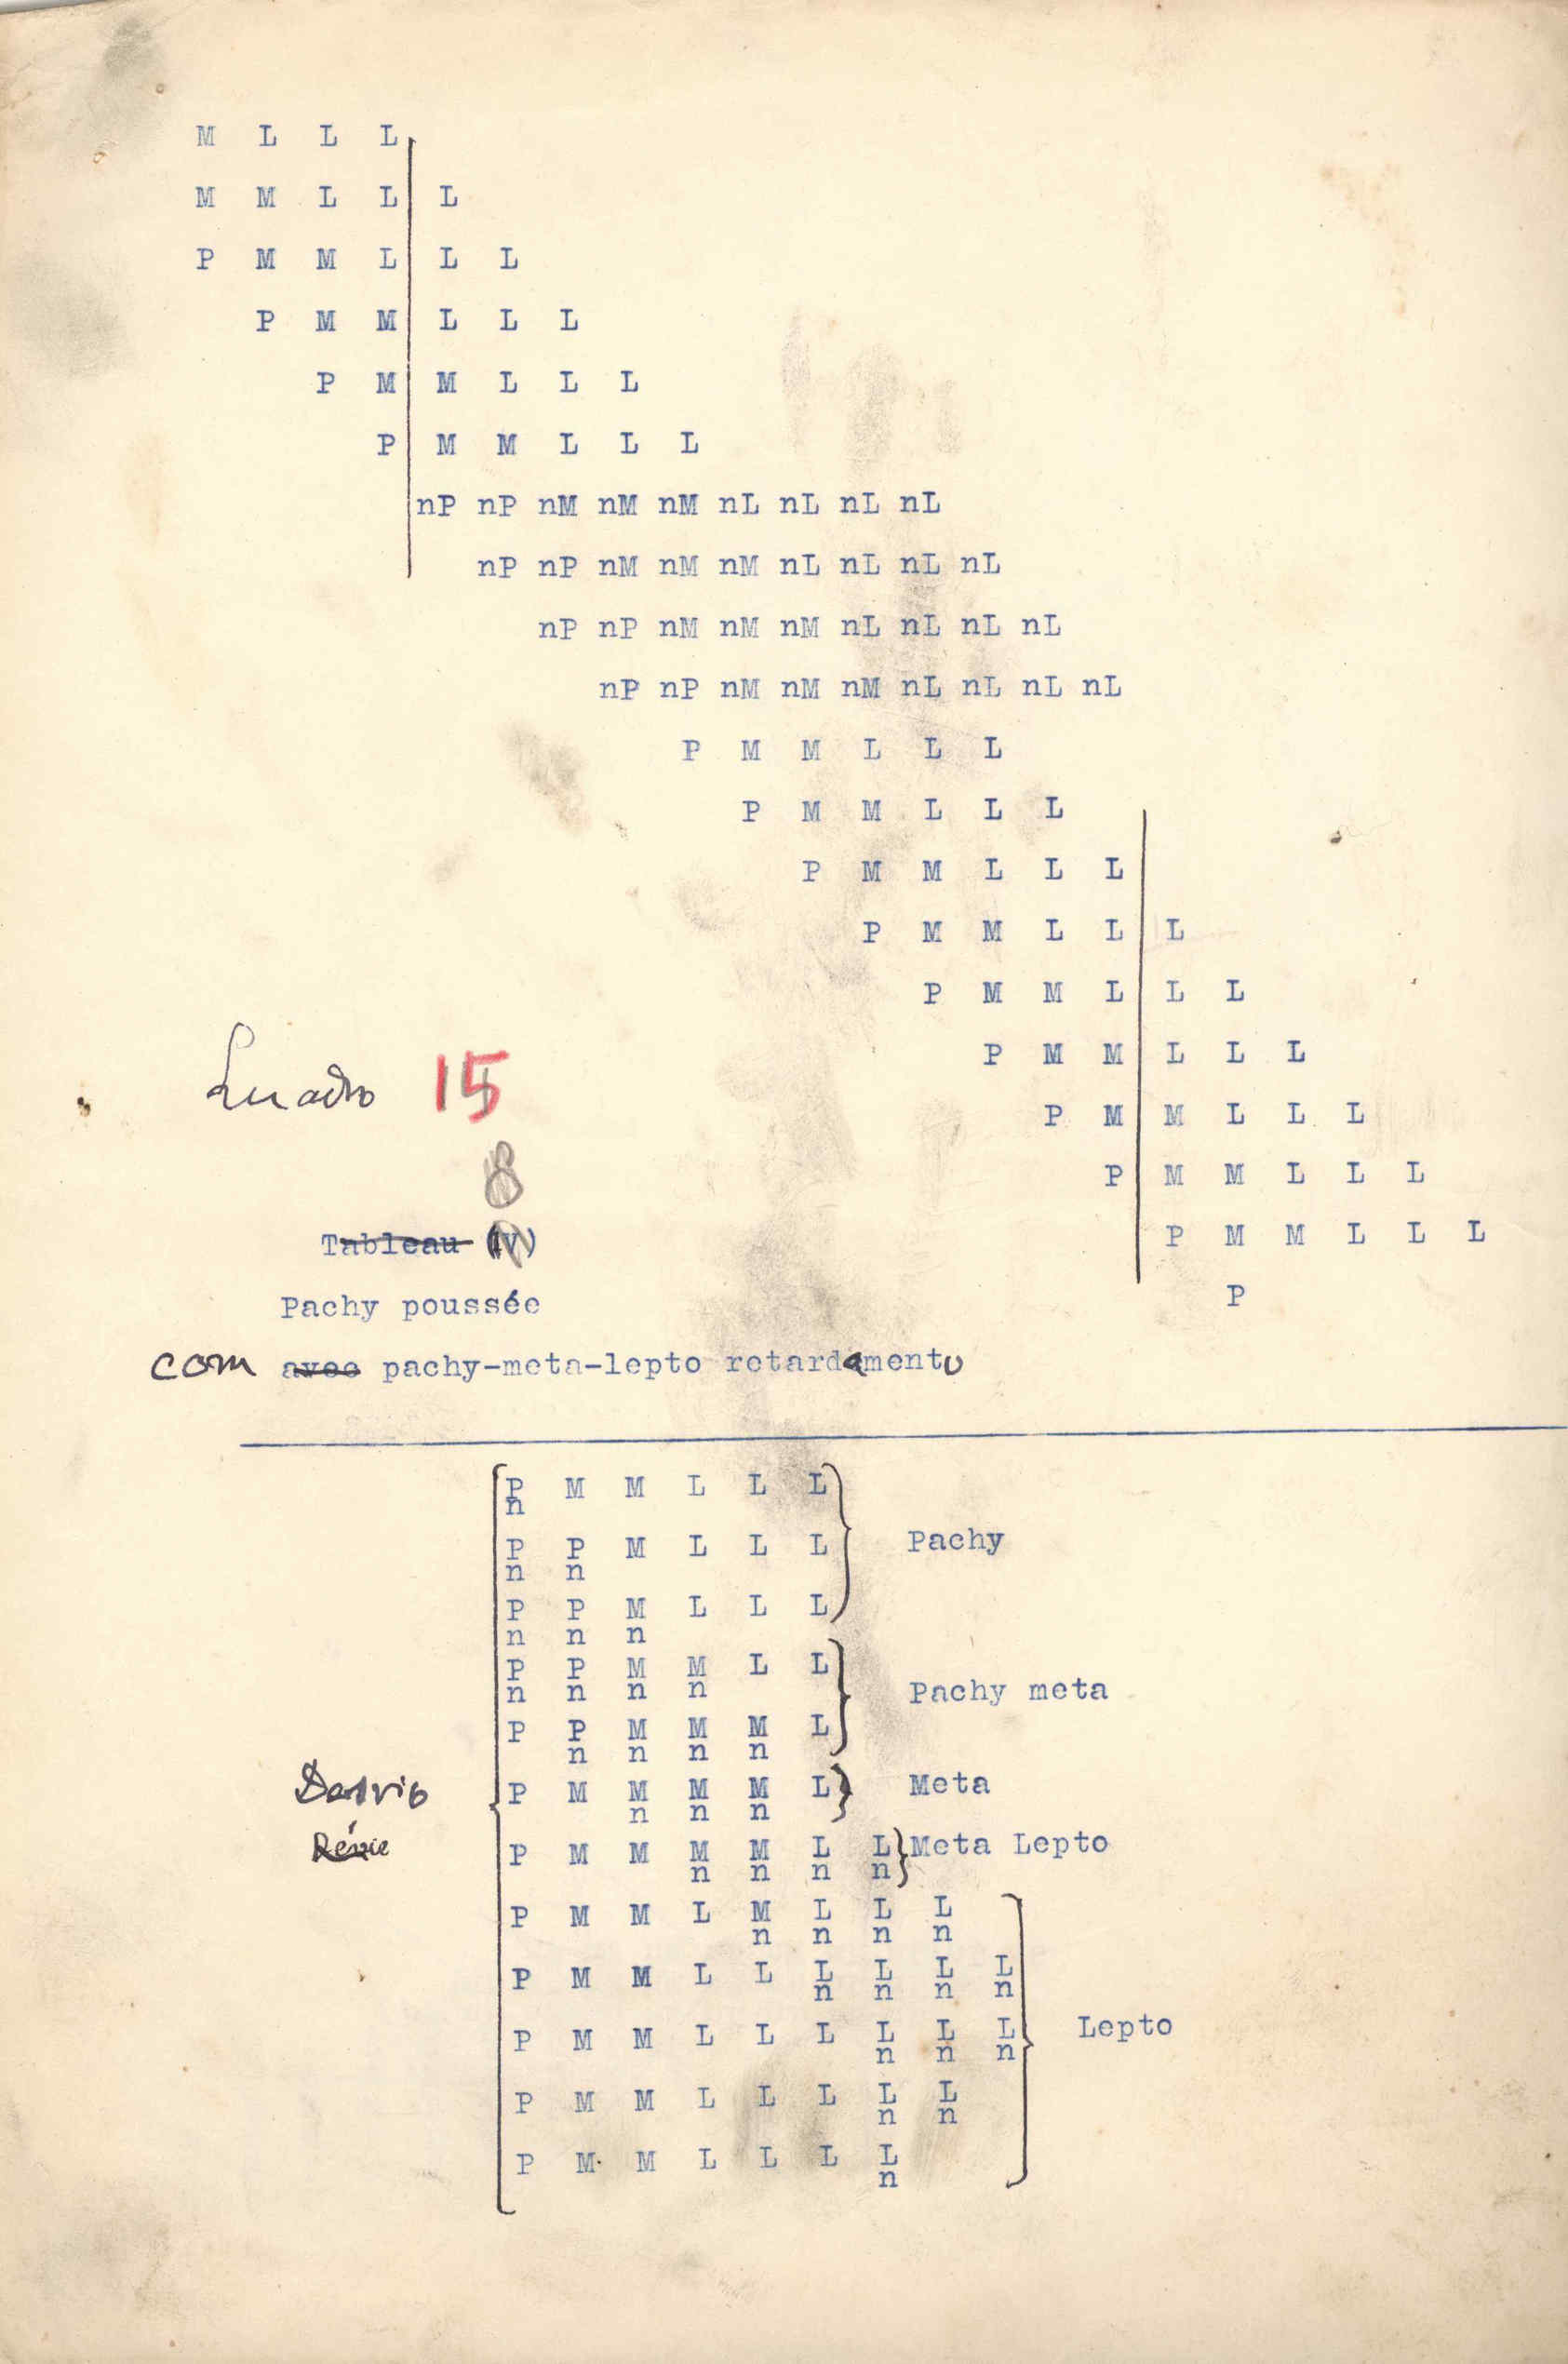 M L L L
M M L L L
P M M L L L
P M M L L L
P M M L L L
P M M L L L
nP nP nM nM nM nL nL nL nL
nP nP nM nM nM nL nL nL nL
nP nP nM nM nM nL nL nL nL
nP nP nM nM nM nL nL nL nL
P M M L L L
P M M L L L
P M M L L L
P M M L L L
P M M L L L
P M M L L L
P M M L L L
P M M L L L
P M M L L L
P
Quadro 15
8
Tableau (IV)
Pachy poussée
com avec pachy-meta-lepto retardamento
P M M L L L
n
P P M L L L Pachy
n n
P P M L L L
n n n
P P M M L L Pachy meta
n n n n
P P M M M L
n n n n
Desvio P M M M M L Meta
n n n
Révie P M M M M L L Meta Lepto
n n n n
P M M L M L L L
n n n n
P M M L L L L L L
n n n n
P M M L L L L L L Lepto
n n n
P M M L L L L L
n n
P M M L L L L
n